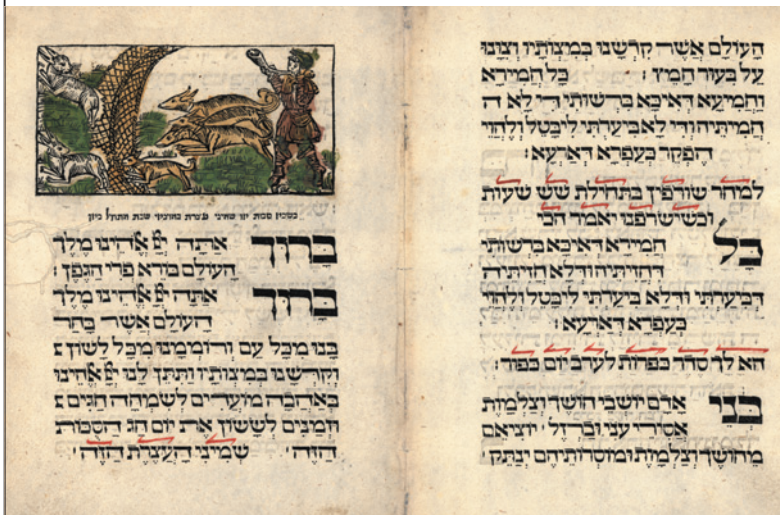 הָעוֹלָם אֲשֶׁר קִדְּשָׁנוּ בְּמִצְוֹתָיו וְצִוָּנוּ
עַל בִּעוּר חָמֵץ ׃ כָּל חֲמִירָא
וַחֲמִיעָא דְּאִיכָּא בִּרְשׁוּתִי דִּי לָא ה
חֲמִיתֵּיהּ וּדִי לָא בִיעַרְתֵּי לִיבַּטֵל וְלֶהֱוֵי
הֶפְקֵר כְּעַפְרָא דְּאַרְעָא׃
לְמָחָר שׂוֹרְפִין בִּתְחִילַת שֵׁשׁ שָׁעוֹת
וּכְשֶׁיִשְׂרְפֶנוּ יֹאמַר הָכִי
כָּל חֲמִירָא דְּאִיכָּא בִּרְשׁוּתִי
דַּחֲזִיתֵיהּ וּדְלָא חֲזִיתֵיהּ
דְּבִיעַרְתֵּי וּדְלָא בִיעַרְתֵּי לִיבַּטֵל וְלֶהֱוֵי
כְּעַפְרָא דְּאַרְעָא׃
הא לך סדר כפרות לערב יום כפור׃
בְּנֵי אָדָם יוֹשְׁבֵי חוֹשֶׁךְ וְצַלְמָוֶת
אֲסוּרֵי עֳנִי וּבַרְזֶל׳ יוֹצִיאֵם
מֵחוֹשֶׁךְ וְצַלְמָוֶת וּמוֹסְרוֹתֵיהֶם יְנַתֵּק׳
יום שבת
בָּרוּךְ אַתָּה יְיָ אֱלֹהֵינוּ מֶלֶךְ
הָעוֹלָם בּוֹרֵא פְּרִי הַגֶּפֶן׃
בָּרוּךְ אַתָּה יְיָ אֱלֹהֵינוּ מֶלֶךְ
הָעוֹלָם אֲשֶׁר בָּחַר
בָּנוּ מִכָּל עַם וְרוֹמְמָנוּ מִכָּל לָשׁוֹן׃
וְקִדְּשָׁנוּ בְּמִצְוֹתָיו וַתִּתֶּן לָנוּ יְיָ אֱלֹהֵינוּ
בְּאַהֲבָה מוֹעֲדִים לְשִׂמְחָה חַגִּים׃
וּזְמַנִּים לְשָׂשׂוֹן אֶת יוֹם חַג הַסֻּכּוֹת
הַזֶּה׳ שְׁמִינִי הָעֲצֶרֶת הַזֶּה׳